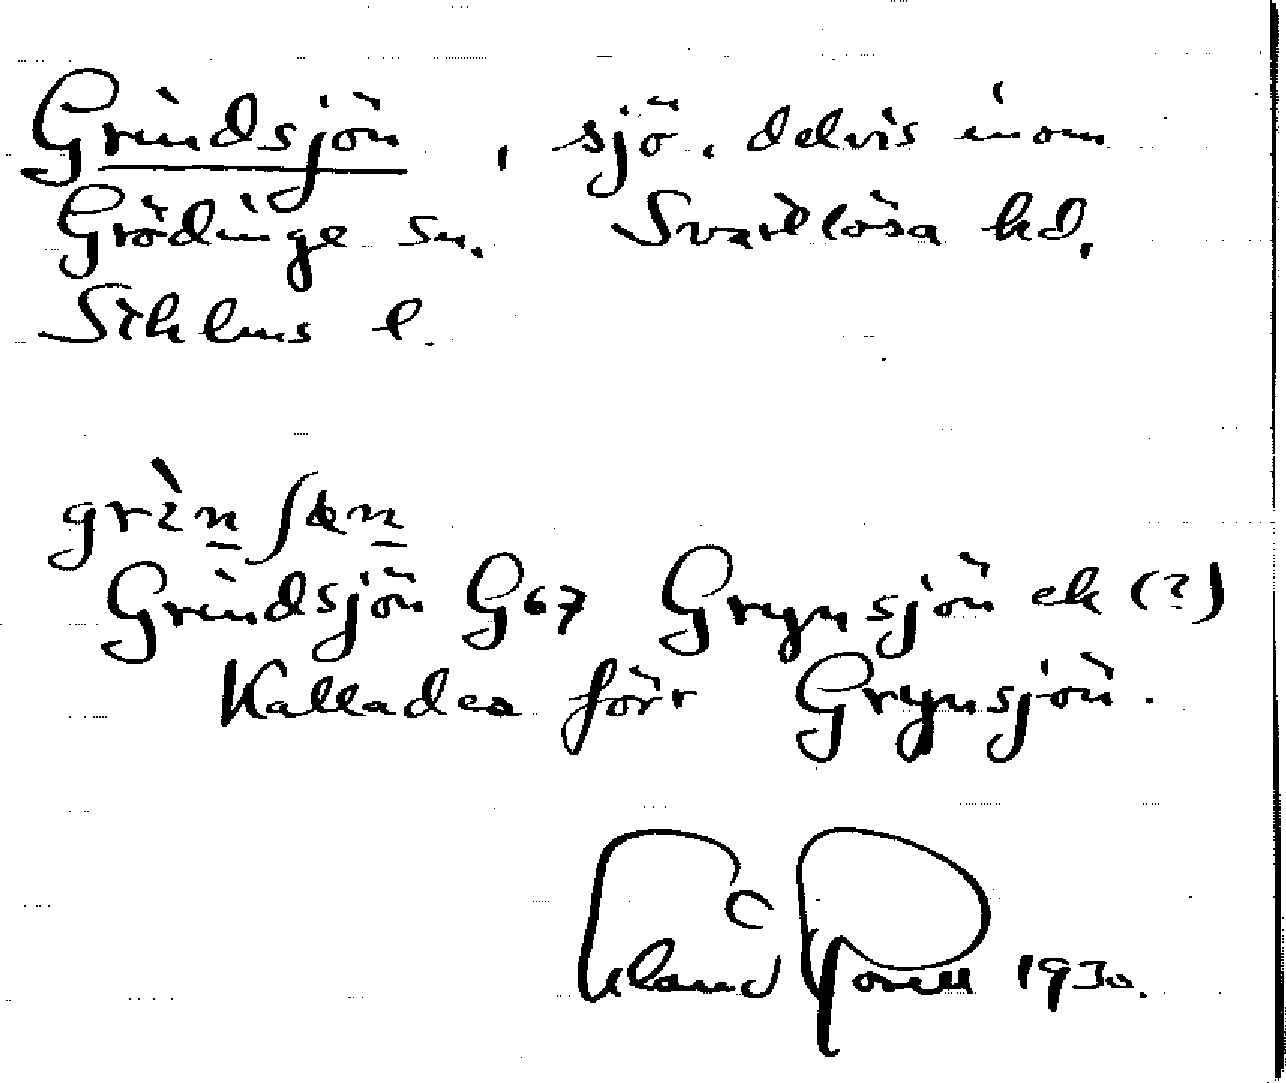 Grindsjön, sjö, delvis inom
Grödinge sn. Svartlösa hd,
Sthlms l.
Grindsjön G67 Grynsjön ek (?)
Kallades förr Grynsjön.
1930.